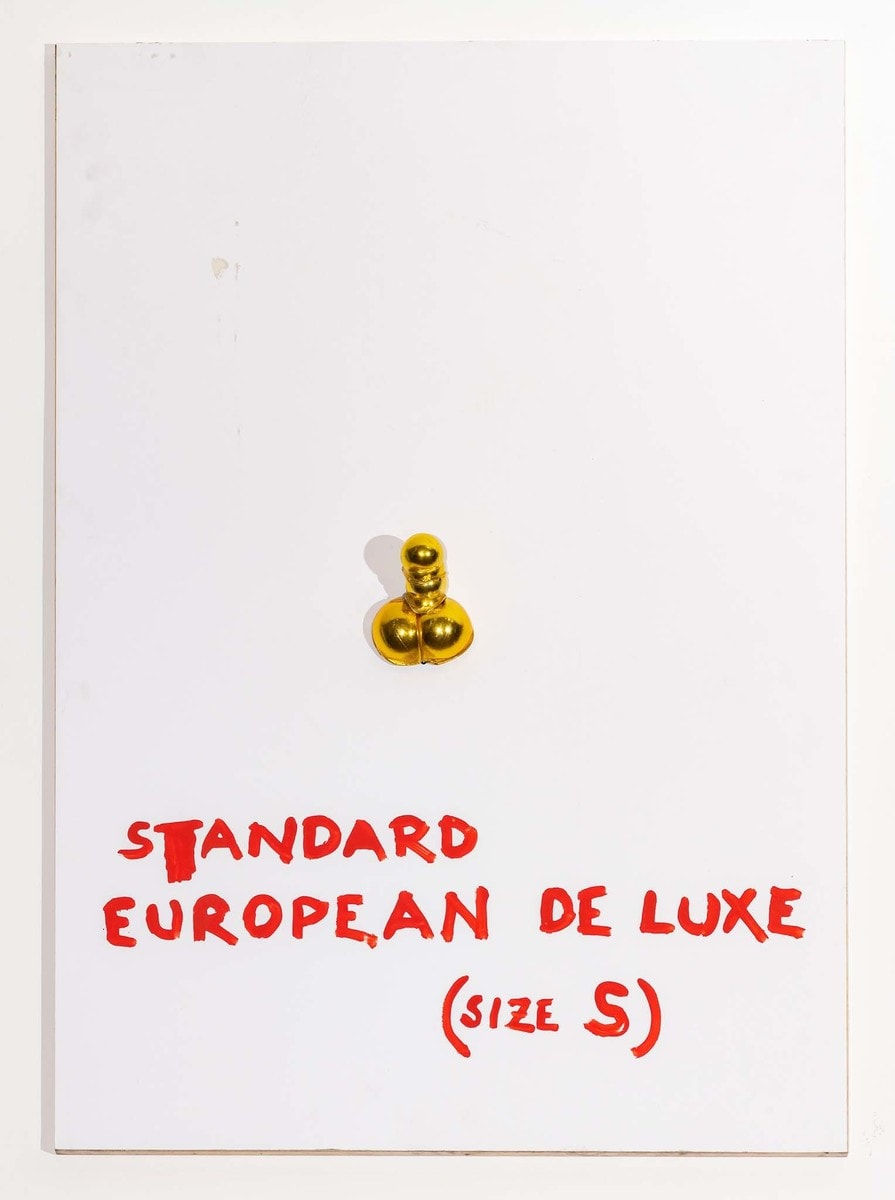 STANDARD
EUROPEAN DE LUXE
(SIZE S)